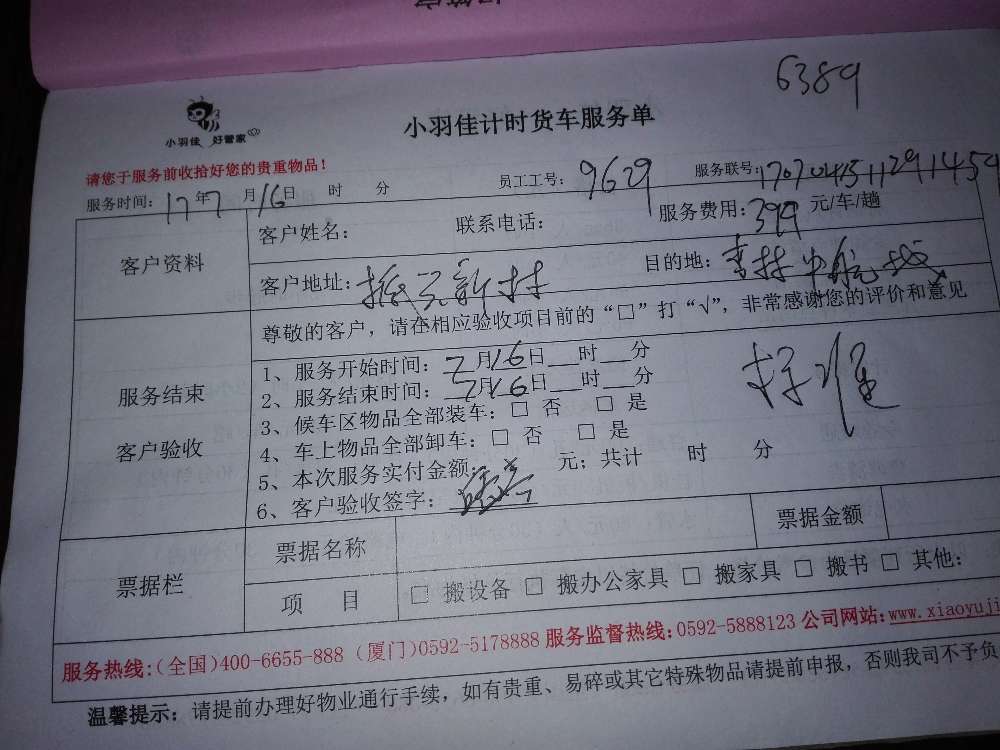 6389
小羽佳 好管家
小羽佳计时货车服务单
请您于服务前收拾好您的贵重物品！
服务时间：17年7月16日 时 分 员工工号：9629 服务联号：
客户资料
客户姓名： 联系电话： 服务费用：399元/车/趟
客户地址：新村 目的地：
服务结束
客户验收
尊敬的客户，请在相应验收项目前的“□”打“√”，非常感谢您的评价和意见
1、服务开始时间：7月16日__时__分
2、服务结束时间：7月16日__时__分
3、候车区物品全部装车：□ 否 □ 是
4、车上物品全部卸车：□ 否 □ 是
5、本次服务实付金额： 元；共计 时 分
6、客户验收签字：
票据栏
票据名称 票据金额
项 目 □ 搬设备 □ 搬办公家具 □ 搬家具 □ 搬书 □ 其他：
服务热线：(全国)400-6655-888 (厦门)0592-5178888 服务监督热线：0592-5888123 公司网站：www.xiaoyuji
温馨提示：请提前办理好物业通行手续，如有贵重、易碎或其它特殊物品请提前申报，否则我司不予负